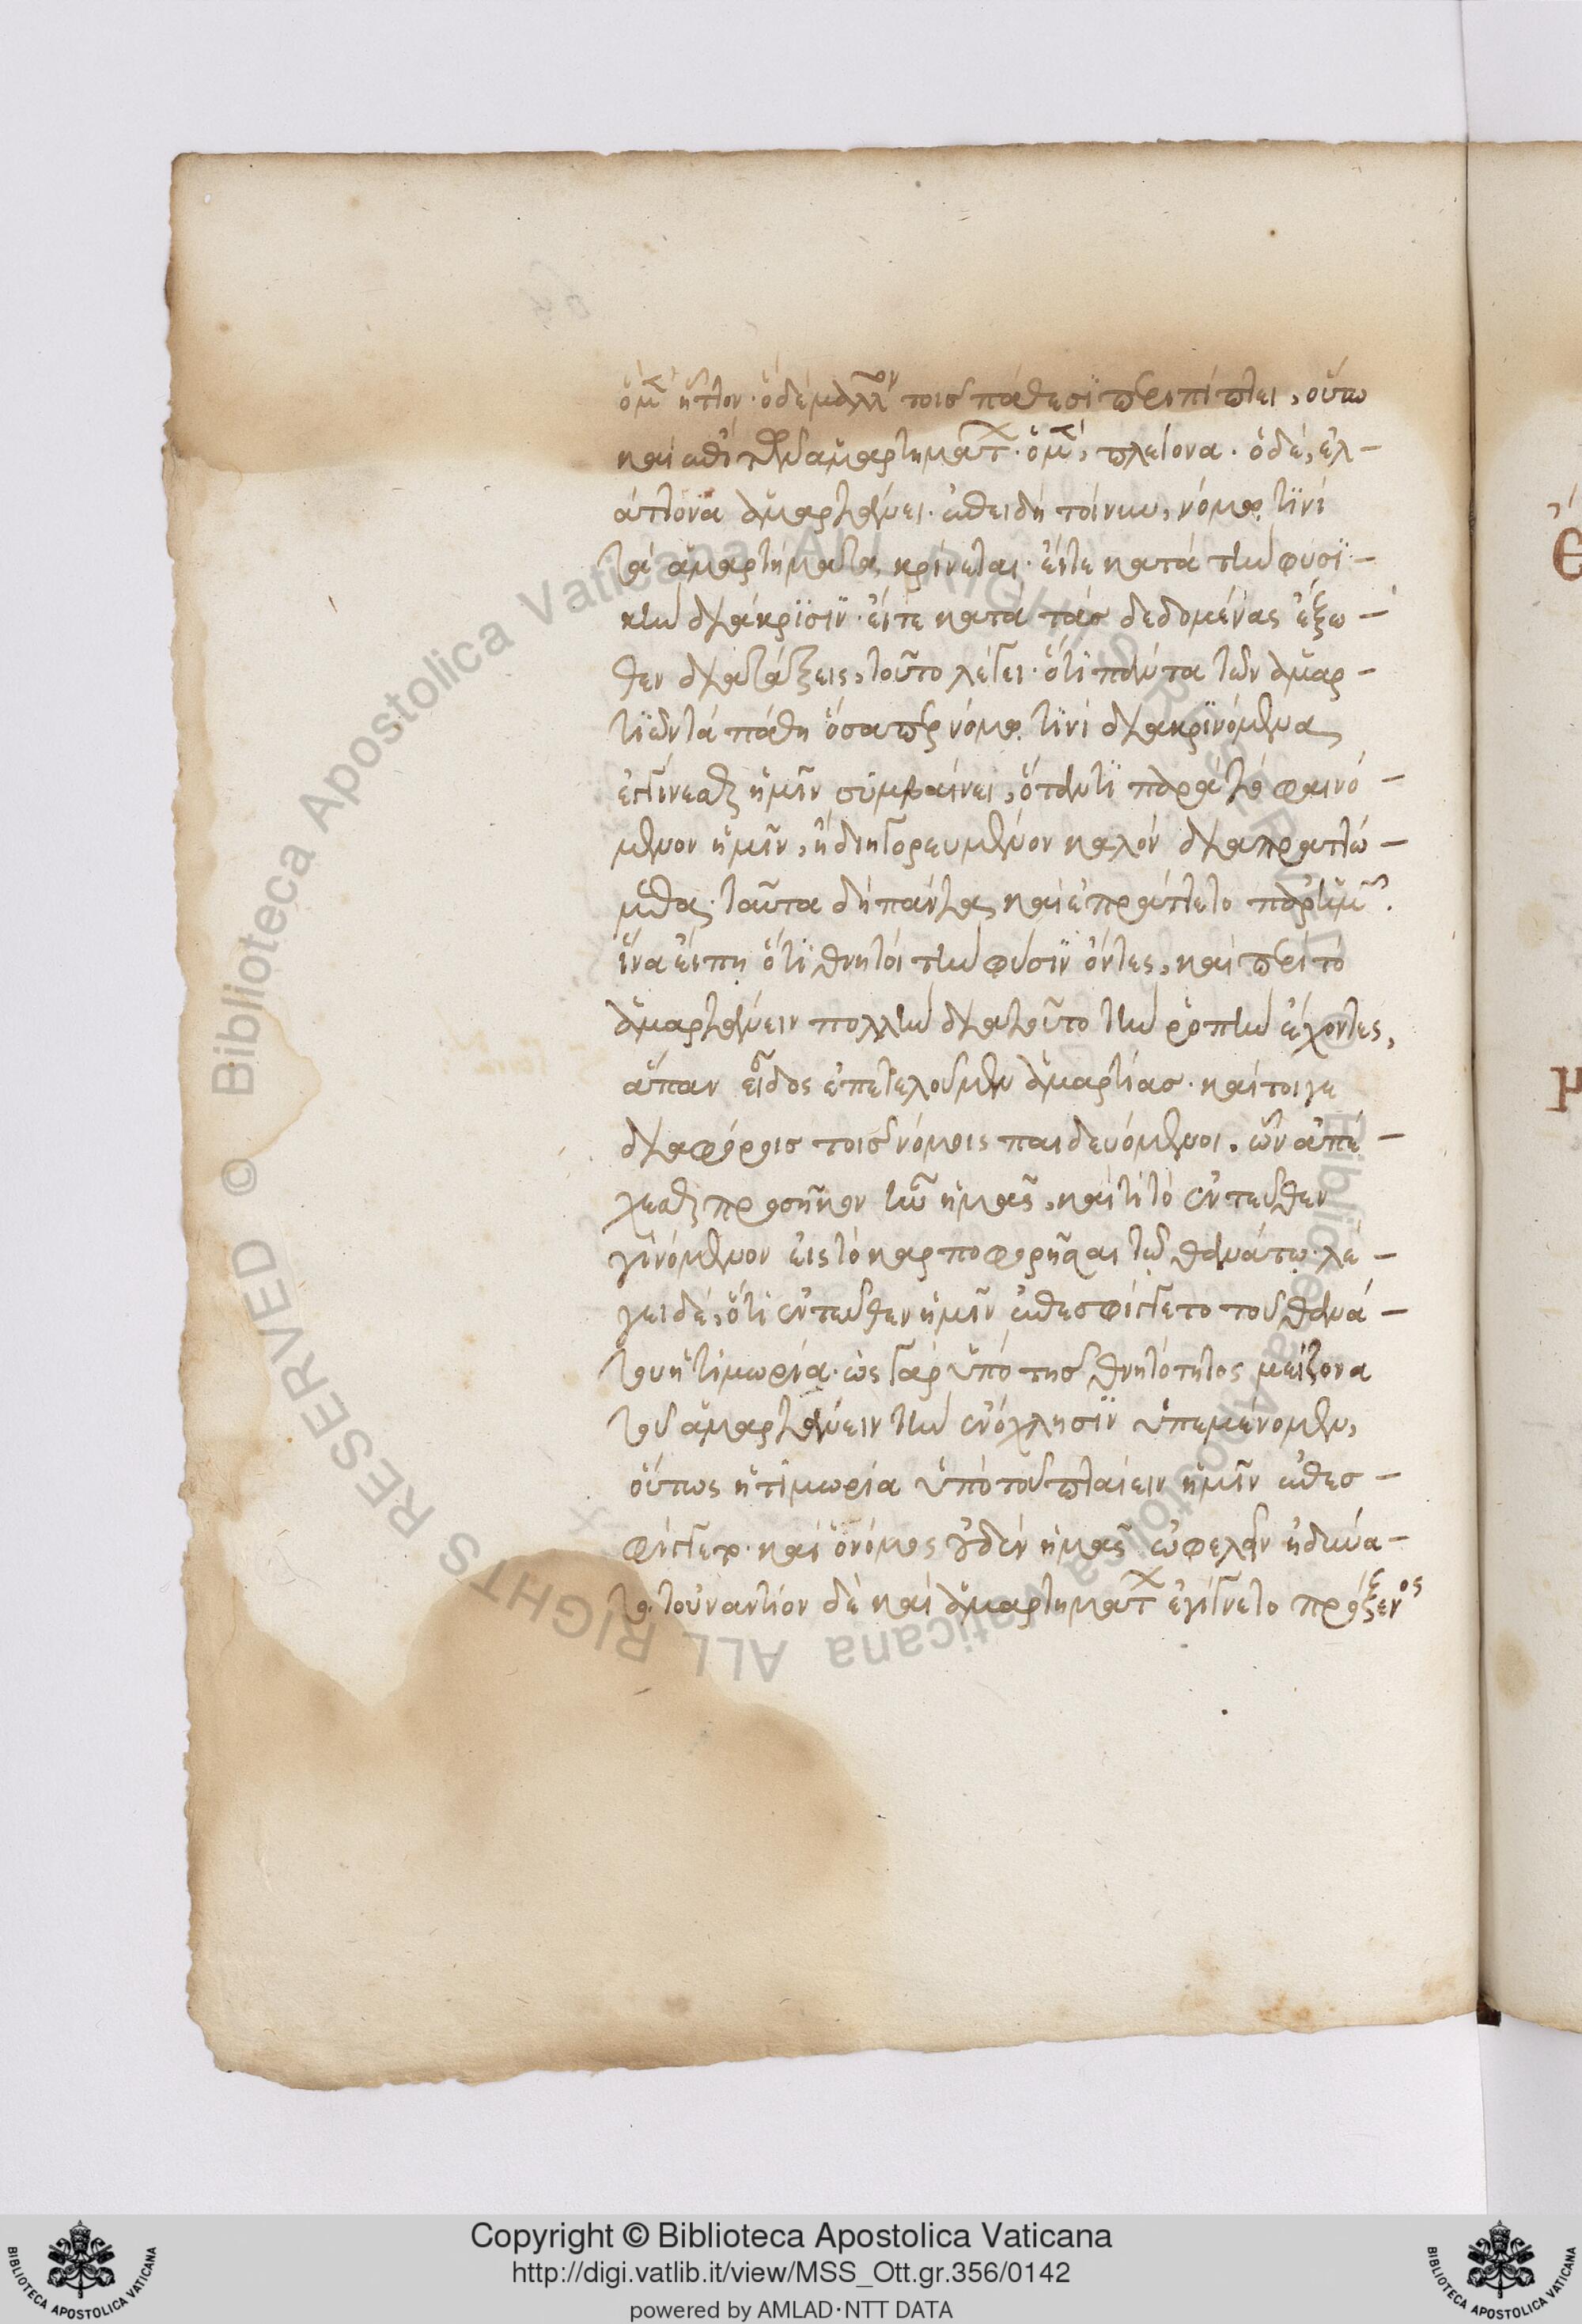 ὁ μὲν ἧττον· ὁ δὲ μᾶλλον τοῖς πάθεσι περιπίπτει, οὕτω
καὶ ἐπὶ τῶν ἁμαρτημάτων· ὁ μὲν, πλείονα· ὁ δὲ, ἐλ-
άττονα ἁμαρτάνει. ἐπειδὴ τοίνυν, νόμῳ τινὶ
τὰ ἁμαρτήματα κρίνεται· εἴτε κατὰ τὴν φυσι-
κὴν διάκρισιν· εἴτε κατὰ τὰς δεδομένας ἔξω-
θεν διατάξεις, τοῦτο λέγει· ὅτι πάντα τῶν ἁμαρ-
τιῶν τὰ πάθη ὅσαπερ νόμῳ τινὶ διακρινόμενα
γίνεσθαι ἡμῖν συμβαίνει, ὅταν τι παρὰ τὸ φαινό-
μενον ἡμῖν, ἢ διηγορευμένον καλὸν διαπραττώ-
μεθα· ταῦτα δὴ πάντα καὶ ἐπράττετο παρ' ἡμῖν·
ἵνα εἴπῃ ὅτι θνητοὶ τὴν φύσιν ὄντες, καὶ περὶ τὸ
ἁμαρτάνειν πολλὴν διὰ τοῦτο τὴν ῥοπὴν ἔχοντες,
ἅπαν εἶδος ἐπετελοῦμεν ἁμαρτίας· καίτοιγε
διαφόροις τοῖς νόμοις παιδευόμενοι, ὧν ἀπέ-
χεσθαι προσῆκον ἦν ἡμᾶς, καὶ τί τὸ ἐντεῦθεν
γινόμενον εἰς τὸ καρποφορῆσαι τῷ θανάτῳ· λέ-
γει δὲ, ὅτι ἐντεῦθεν ἡμῖν ἐπεσφίγγετο τοῦ θανά-
του ἡ τιμωρία· ὡς γὰρ ὑπὸ τῆς θνητότητος μείζονα
τοῦ ἁμαρτάνειν τὴν ἐνόχλησιν ὑπεμένομεν,
οὕτως ἡ τιμωρία ὑπὸ τοῦ πταίειν ἡμῖν ἐπεσ-
φίγγετο· καὶ ὁ νόμος οὐδὲν ἡμᾶς ὠφελεῖν ἠδύνα-
το· τοὐναντίον δὲ καὶ ἁμαρτημάτων ἐγίγνετο πρόξενος
Copyright © Biblioteca Apostolica Vaticana
http://digi.vatlib.it/view/MSS_Ott.gr.356/0142
powered by AMLAD·NTT DATA